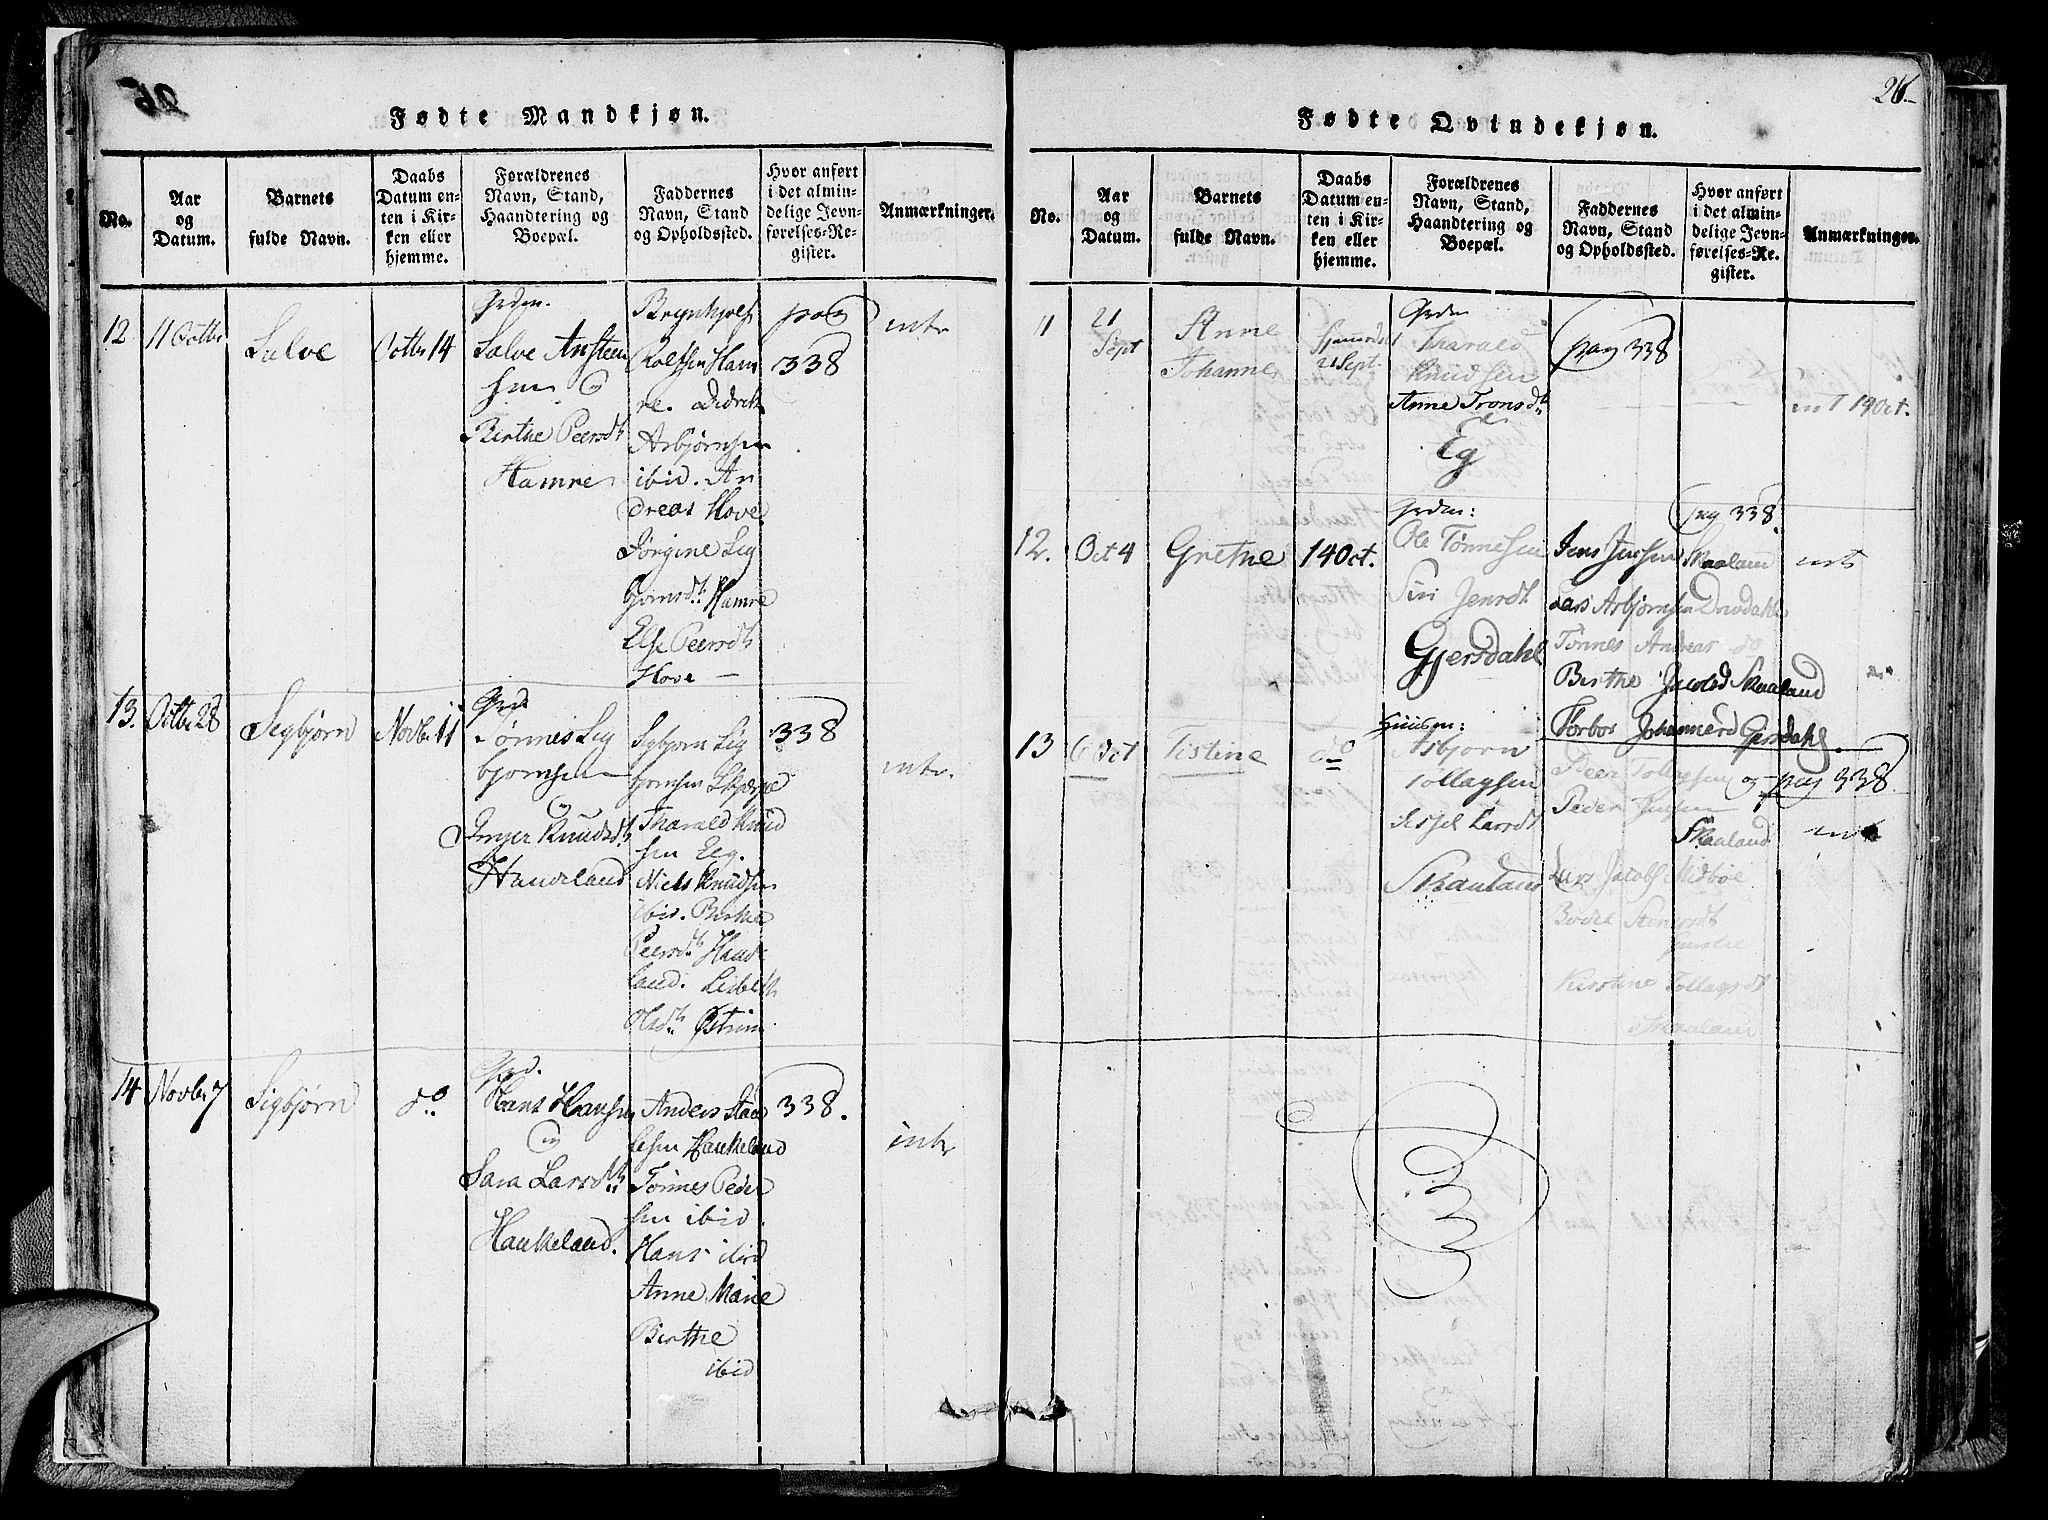 26.
Fødte Mandkjøn.
No.
Aar
og
Datum.
Barnets
fulde Navn.
Daabs
Datum en-
ten i Kir-
ken eller
hjemme.
Forældrenes
Navn, Stand,
Haandtering og
Boepæl.
Faddernes
Navn, Stand
og Opholdssted.
Hvor anført
i det almin-
delige Jevn-
førelses-Re-
gister.
Anmærkninger.
12
11 Octbr
Salve
Octbr 14
Grdm.
Salve Ansteen
sen
Birthe Peersdt
Hamre
Brynhjolf
Rolfsen Ham
re. Didrich
Asbjørnsen
ibid. An
dreas Hove
Jørgine Sig
bjørnsdt Hamre
Else Peersdt
Hove
pag
338
intr
13.
Octbr 28
Segbjørn
Novbr 11
Grd.
Tønnes Sig
bjørnsen
Inger Knudsdt
Haveland
Sigbjørn Sig
bjørnsen Skjerpe
Tharald Knud
sen Eeg.
Niels Knudsen
ibid. Birthe
Peersdt
land. Lisbeth
Olsdt Østrim
338
intr.
14
Novbr 7
Sigbjørn
do
Grd.
Hans Hansen
Sara Larsdt
Haukeland.
Anders
Haukeland
Tønnes Peder
sen ibid.
Hans ibid
Anne Marie
Birthe
ibid
338.
intr
Fødte Qvindekjøn.
No.
Aar
og
Datum.
Barnets
fulde Navn.
Daabs
Datum en-
ten i Kir-
ken eller
hjemme.
Forældrenes
Navn, Stand,
Haandtering og
Boepæl.
Faddernes
Navn, Stand
og Opholdssted.
Hvor anført
i det almin-
delige Jevn-
førelses-Re-
gister.
Anmærkninger.
11
21
Sept
Anne
Johanne
21 Sept.
Grdm
Tharald
Knudsen
Anne Tronsdt
Eg
pag 338
int 14 Oct.
12.
Oct 4
Grethe
14 Oct.
Grdm:
Ole Tønnesen
Siri Jensdt
Gjersdahl
pag 338.
Jens Jensen Skaaland
Lars Asbjørnsen Drivdahl
Tønnes Andreas do
Birthe Jacobsd Skaaland
Torbor Johannesd Gjersdahl.
13
6 Oct
Tistine
do
Huusm:
Asbjørn
Tollagsen
Sissel Larsdt
Skaaland
Peer Tollagsen og pag 338
Peder Jensen
Skaaland
Lars Jacobs Midbøe
Bodil Stensdt
Kirstine Tollagsdt
Skaaland